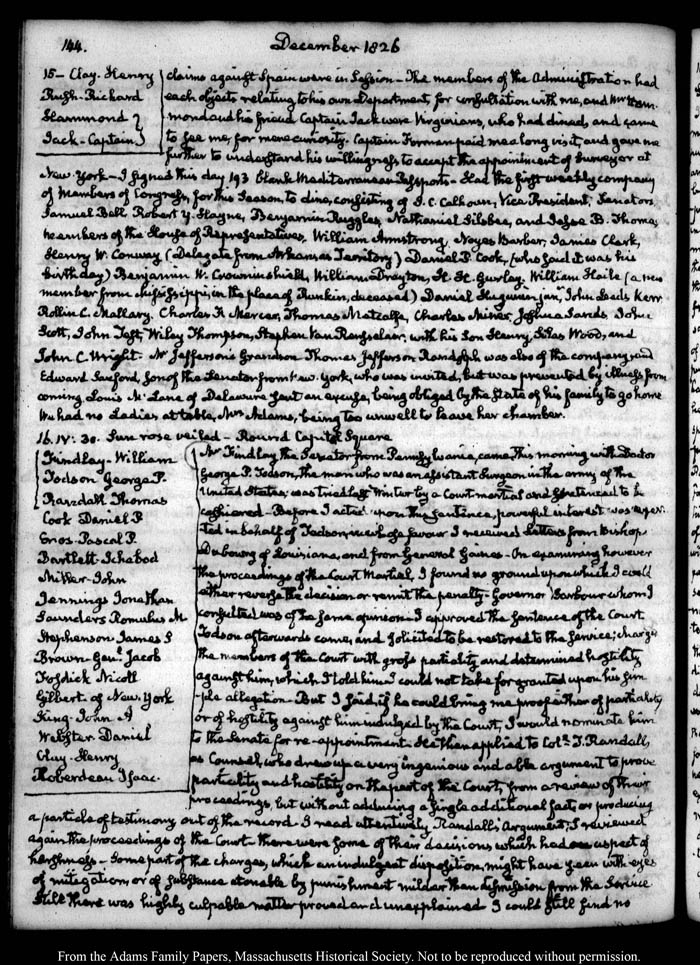 144.
December 1826
15 - Clay-Henry
Rush-Richard
Hammond }
Jack-Captain }
claims against Spain were in Session - The members of the Administration had
each objects relating to his own Department, for consultation with me, and Mr Ham-
mond and his friend Captain Jack were Virginians, who had dined, and came
to see me, for mere curiosity. Captain Forman paid me a long visit, and gave me
further to understand his willingness to accept the appointment of Surveyor at
New York - I signed this day 193 blank Mediterranean Passports - Had the first weekly company
of Members of Congress, for this Season, to dine, consisting of J. C. Calhoun, Vice President, Senators
Samuel Bell Robert Y. Hayne, Benjamin Ruggles, Nathaniel Silsbee, and Jesse B. Thomas
members of the House of Representatives, William Armstrong, Noyes Barber, James Clark,
Henry W. Conway (Delegate from Arkansas Territory) Daniel P. Cook, (who said it was his
birth day) Benjamin W. Crowninshield, William Drayton, H. H. Gurley, William Haile (a new
member from Mississippi, in the place of Rankin, deceased) Daniel Hugunin junr. John Leeds Kerr
Rollin C. Mallary. Charles F. Mercer, Thomas Metcalfe, Charles Miner, Joshua Sands, John
Scott, John Taft, Wiley Thompson, Stephen Van Rensselaer, with his Son Henry, Silas Wood, and
John C. Wright. Mr Jefferson's Grandson Thomas Jefferson Randolph was also of the company, and
Edward Sanford, Son of the Senator from New. York, who was invited, but was prevented by illness from
coming Louis McLane of Delaware sent an excuse, being obliged by the state of his family to go home
We had no Ladies at table, Mrs Adams, being too unwell to leave her chamber.
16. IV: 30. Sun rose veiled - Round Capitol Square
Findlay - William
Todson George P.
Randall Thomas
Cook Daniel P
Enos - Pascal P.
Bartlett - Ichabod
Miller - John
Jennings Jonathan
Saunders Romulus M
Stephenson James S
Brown - Genl. Jacob
Fosdick Nicoll
Gilbert of New. York
King - John A
Webster Daniel
Clay - Henry
Roberdeau Isaac
Mr. Findlay the Senator from Pennsylvania, came this morning with Doctor
George P. Todson, the man who was an assistant Surgeon in the army of the
United States, was tried last Winter by a Court martial and Sentenced to be
cashiered - Before I acted upon this Sentence, powerful interest was exer-
ted in behalf of Todson, in whose favour I received Letters from Bishop
Dubourg of Louisiana, and from General Gaines - On examining however
the proceedings of the Court Martial, I found no ground upon which I could
either reverse the decision or remit the penalty - Governor Barbour whom I
consulted was of the same opinion - I approved the Sentence of the Court,
Todson afterwards came, and solicited to be restored to the service; charged
the members of the Court with gross partiality and determined hostility
against him, which I told him I could not take for granted upon his sim-
ple allegation - But I said, if he could bring me proof either of partiality
or of hostility against him indulged by the Court, I would nominate him
to the Senate for re-appointment. He then applied to Coll. T. Randall,
as Counsel, who drew up a very ingenious and able argument to prove
partiality and hostility on the part of the Court, from a review of their
proceedings, but without adducing a single additional fact, or producing
a particle of testimony out of the record I read attentively Randall's Argument, I reviewed
again the proceedings of the Court - there were some of their decisions which had an aspect of
harshness - Some part of the charges, which an indulgent disposition, might have seen with eyes
of mitigation, or of substance atonable by punishment milder than dismission from the Service
Still there was highly culpable matter proved and unexplained I could still find no
From the Adams Family Papers, Massachusetts Historical Society. Not to be reproduced without permission.